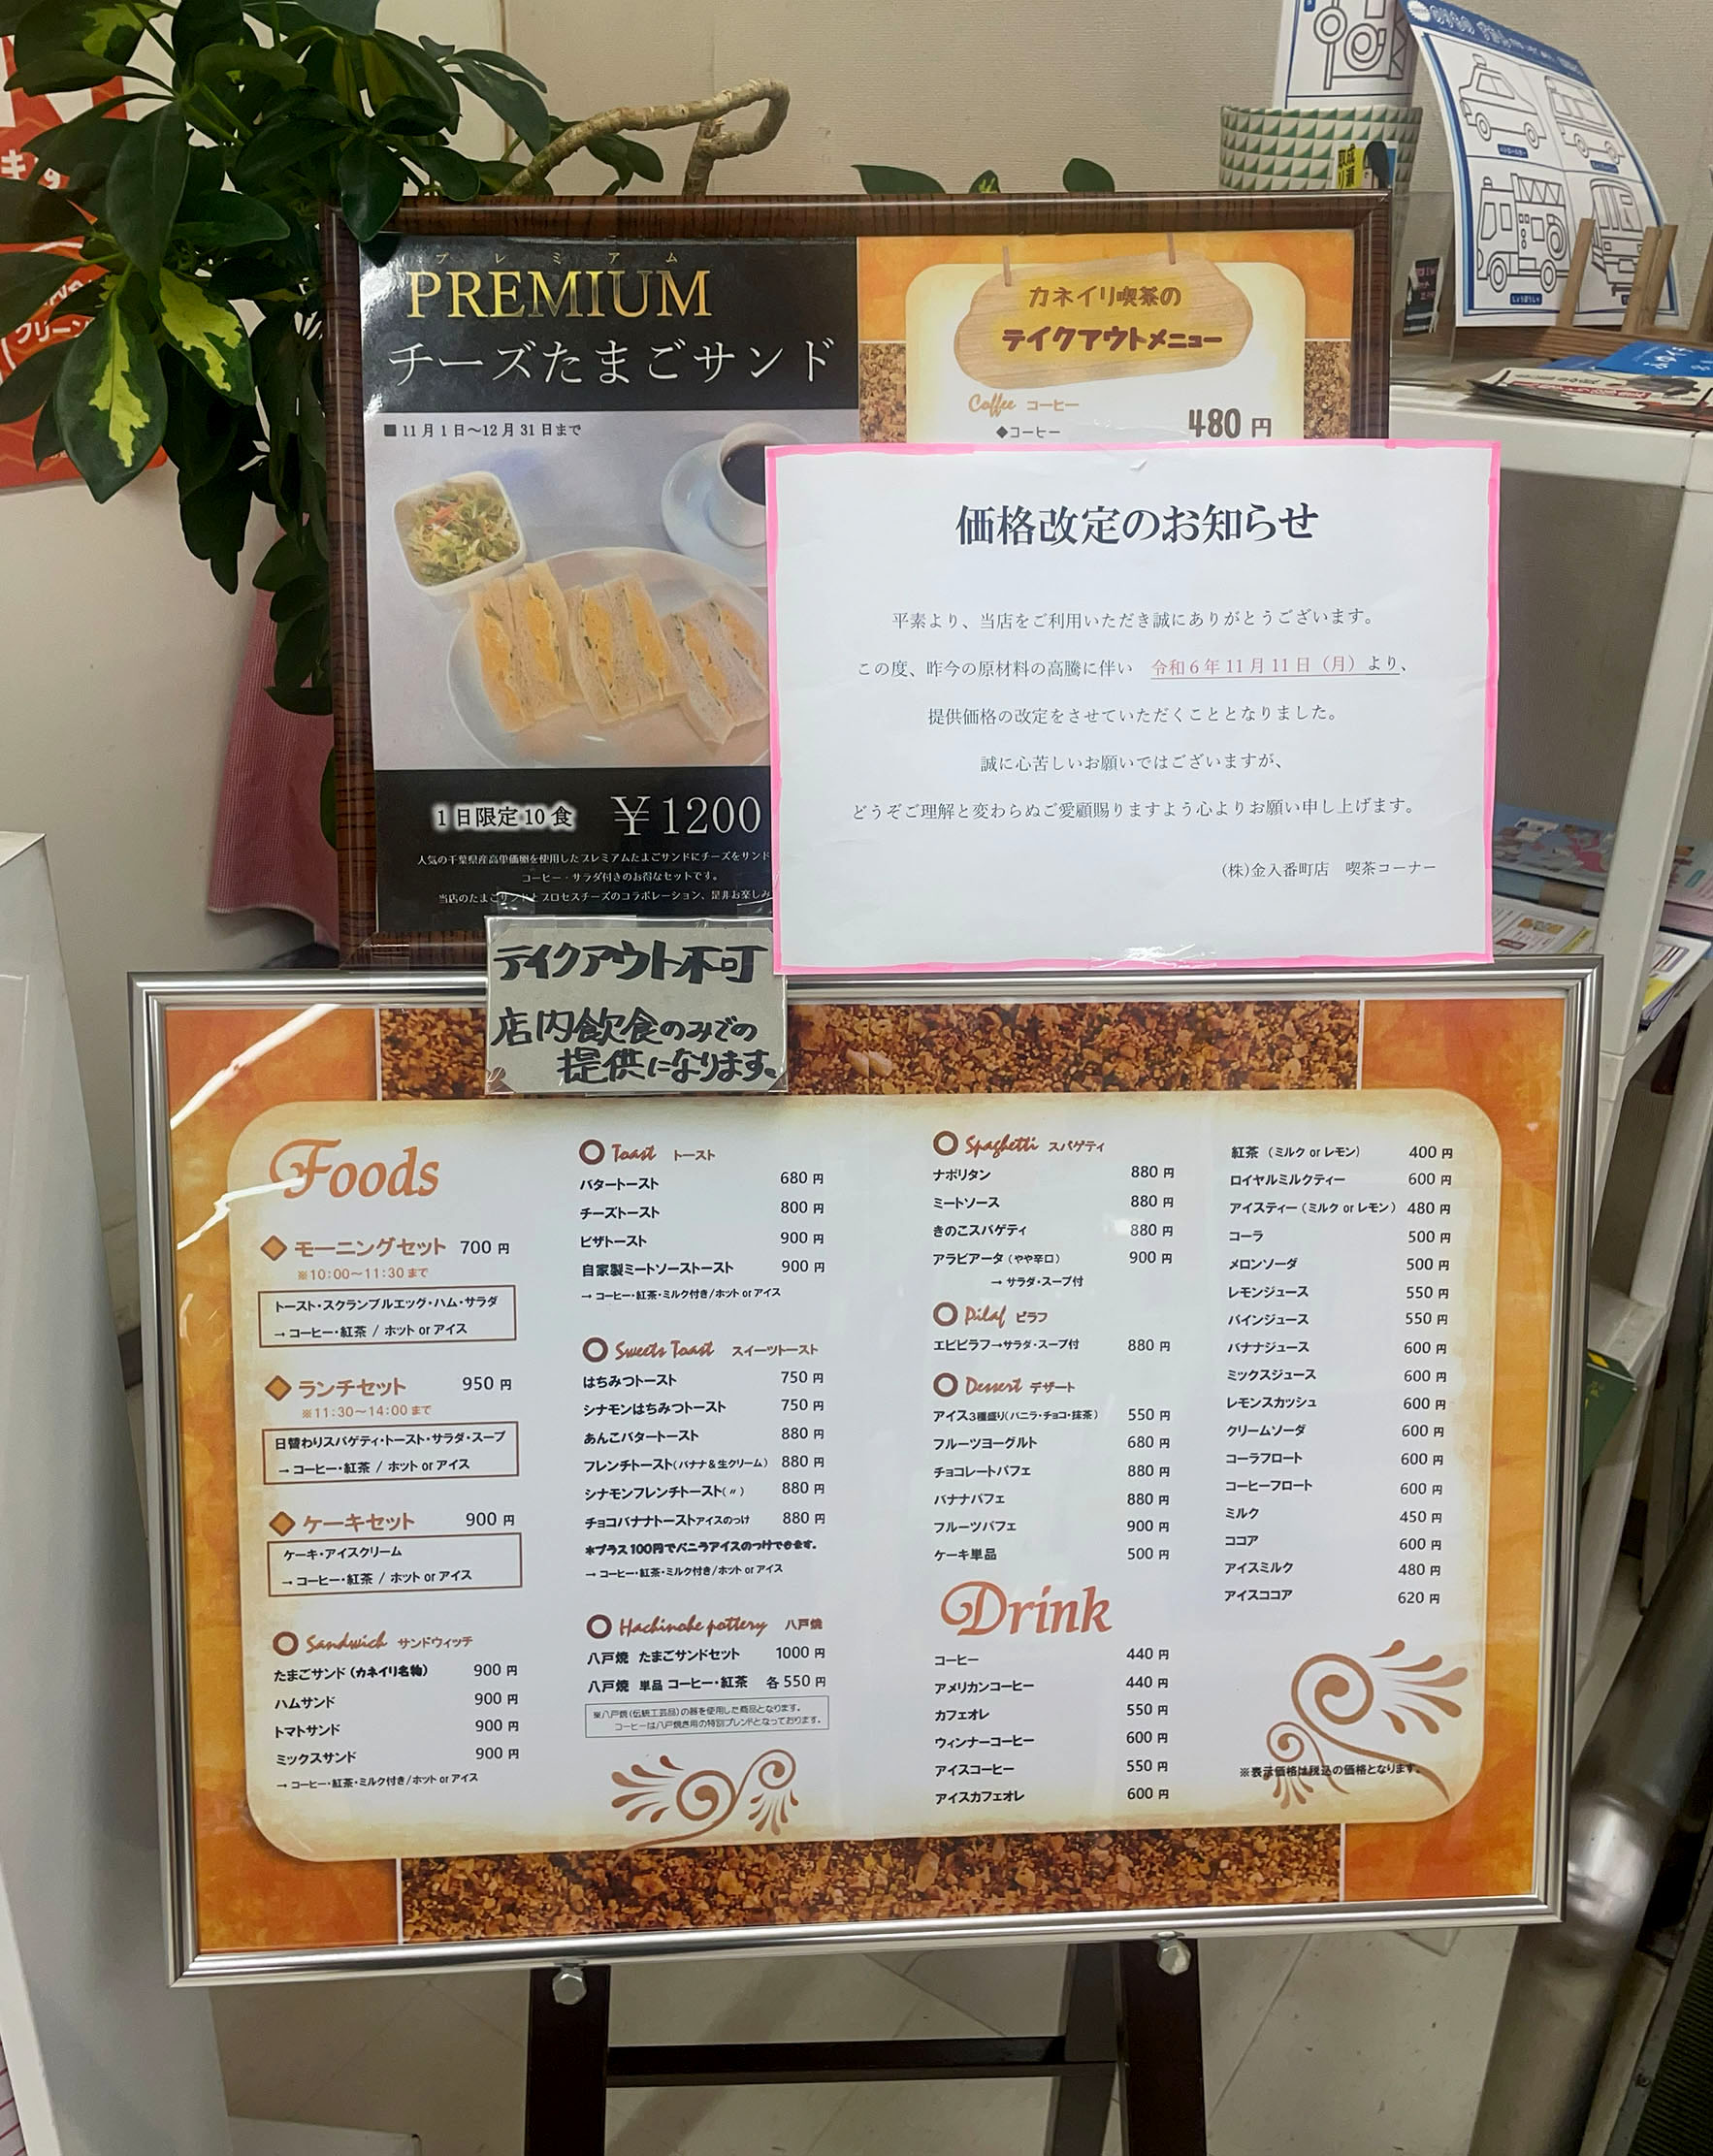 プレミアム
PREMIUM
チーズたまごサンド
■11月1日~12月31日まで
1日限定10食 ¥1200
人気の千葉県産高単価卵を使用したプレミアムたまごサンドにチーズをサンド
コーヒー・サラダ付きのお得なセットです。
当店のたまごサンドとプロセスチーズのコラボレーション、是非お楽しみ
カネイリ喫茶の
テイクアウトメニュー
Coffee コーヒー
◆コーヒー 480円
価格改定のお知らせ
平素より、当店をご利用いただき誠にありがとうございます。
この度、昨今の原材料の高騰に伴い 令和6年11月11日(月)より、
提供価格の改定をさせていただくこととなりました。
誠に心苦しいお願いではございますが、
どうぞご理解と変わらぬご愛顧賜りますよう心よりお願い申し上げます。
(株)金入番町店 喫茶コーナー
テイクアウト不可
店内飲食のみでの
提供になります。
Foods
モーニングセット 700円
※10:00~11:30まで
トースト・スクランブルエッグ・ハム・サラダ
→コーヒー・紅茶 / ホット or アイス
ランチセット 950円
※11:30~14:00まで
日替わりスパゲティ・トースト・サラダ・スープ
→コーヒー・紅茶 / ホット or アイス
ケーキセット 900円
ケーキ・アイスクリーム
→コーヒー・紅茶 / ホット or アイス
Sandwich サンドウィッチ
たまごサンド(カネイリ名物) 900円
ハムサンド 900円
トマトサンド 900円
ミックスサンド 900円
→コーヒー・紅茶・ミルク付き/ホット or アイス
Toast トースト
バタートースト 680円
チーズトースト 800円
ピザトースト 900円
自家製ミートソーストースト 900円
→コーヒー・紅茶・ミルク付き/ホット or アイス
Sweets Toast スイーツトースト
はちみつトースト 750円
シナモンはちみつトースト 750円
あんこバタートースト 880円
フレンチトースト(バナナ&生クリーム) 880円
シナモンフレンチトースト(〃) 880円
チョコバナナトーストアイスのっけ 880円
*プラス100円でバニラアイスのっけできます。
→コーヒー・紅茶・ミルク付き/ホット or アイス
Hachinohe pottery 八戸焼
八戸焼 たまごサンドセット 1000円
八戸焼 単品 コーヒー・紅茶 各550円
※八戸焼(伝統工芸品)の器を使用した商品となります。
コーヒーは八戸焼き用の特別ブレンドとなっております。
Spaghetti スパゲティ
ナポリタン 880円
ミートソース 880円
きのこスパゲティ 880円
アラビアータ(やや辛口) 900円
→サラダ・スープ付
Pilaf ピラフ
エビピラフ→サラダ・スープ付 880円
Dessert デザート
アイス3種盛り(バニラ・チョコ・抹茶) 550円
フルーツヨーグルト 680円
チョコレートパフェ 880円
バナナパフェ 880円
フルーツパフェ 900円
ケーキ単品 500円
Drink
コーヒー 440円
アメリカンコーヒー 440円
カフェオレ 550円
ウィンナーコーヒー 600円
アイスコーヒー 550円
アイスカフェオレ 600円
紅茶 (ミルク or レモン) 400円
ロイヤルミルクティー 600円
アイスティー(ミルク or レモン) 480円
コーラ 500円
メロンソーダ 500円
レモンジュース 550円
パインジュース 550円
バナナジュース 600円
ミックスジュース 600円
レモンスカッシュ 600円
クリームソーダ 600円
コーラフロート 600円
コーヒーフロート 600円
ミルク 450円
ココア 600円
アイスミルク 480円
アイスココア 620円
※表示価格は税込の価格となります。